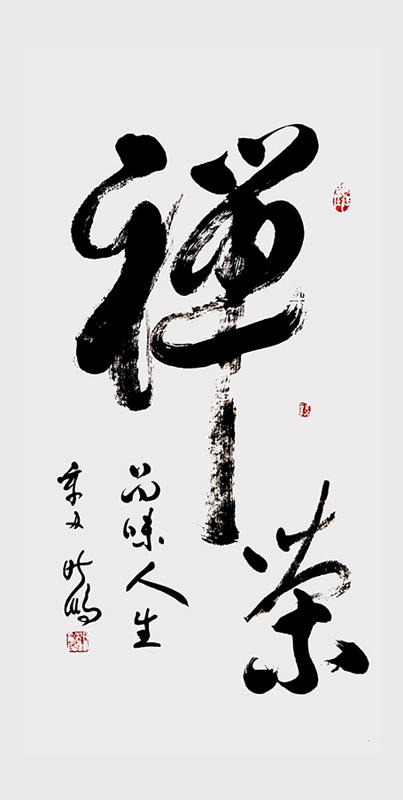 禅茶
品味人生
辛丑